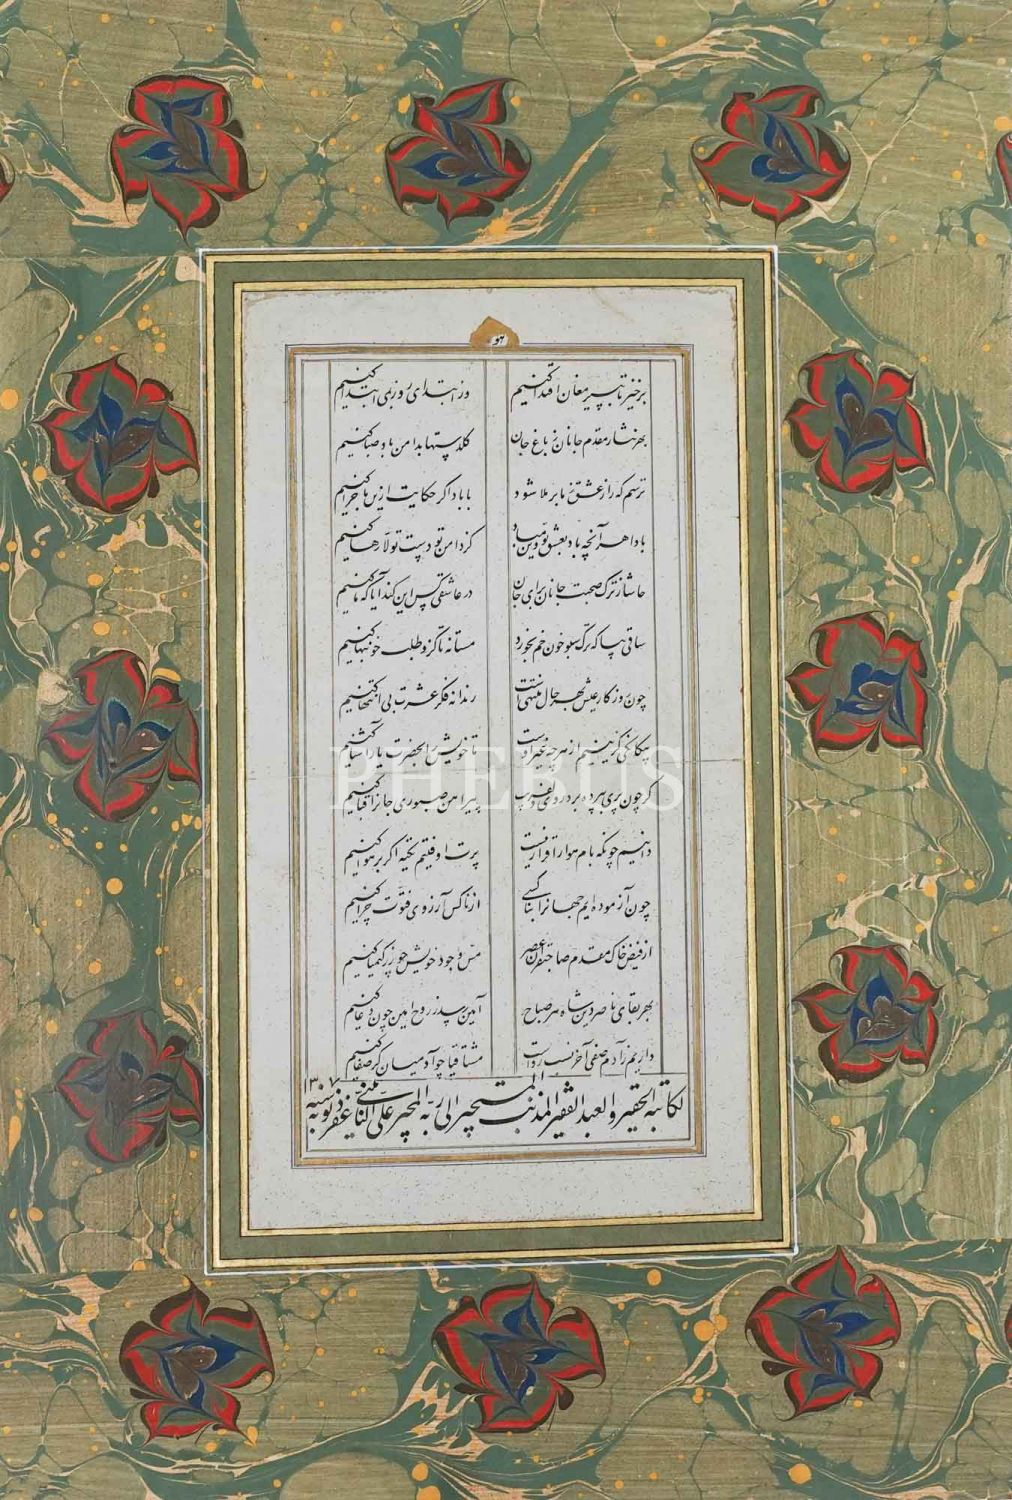 هو
برخیز تا به پیر مغان اقتدا کنیم
وز ابتدای روز می ابتدا کنیم
بهر نثار مقدم جانان ز باغ جان
گلدستها بدامن باد صبا کنیم
ترسم که راز عشق ز ما برملا شود
با باد اگر حکایت ازین ماجرا کنیم
بادا هر آنچه باد بعشق تو وین مباد
کز دامن تو دست تولا رها کنیم
حاشا ز ترک صحبت جانان برای جان
در عاشقی کس این کند آیا که ما کنیم
ساقی بیا که ترک سلو خون خم بخورد
مستانه تا کزو طلب خونبها کنیم
چون دور کار عیش بهر حال منتهی است
رندانه فکر عشرت بی انتها کنیم
بیگانگی گزینیم از هرچه غیر اوست
تا خویش را بحضرت یار آشنا کنیم
گر چون پری ز پرده برد روی دلفریب
پیراهن صبوری جان را قبا کنیم
دانیم چونکه بام هوا را قرار نیست
پرت اوفتیم تکیه اگر بر هوا کنیم
چون آزموده‌ایم جهان را بناکسی
از ناکس آرزوی فتوت چرا کنیم
از فیض خاک مقدم صاحبقران عصر
مس وجود خویش چو زر کیمیا کنیم
بهر بقای ناصردین شاه هر صباح
آمین رسد ز روح امین چون دعا کنیم
داریم ز آدم صفی آخر نسب رواست
مشتاقیا چو آدمیان گر صفا کنیم
لکاتبه الحقیر و العبد الفقیر المذنب المستجیر الی ربه المجیر علی النائینی غفر ذنوبه سنه ۱۳۰۷
PHEBUS